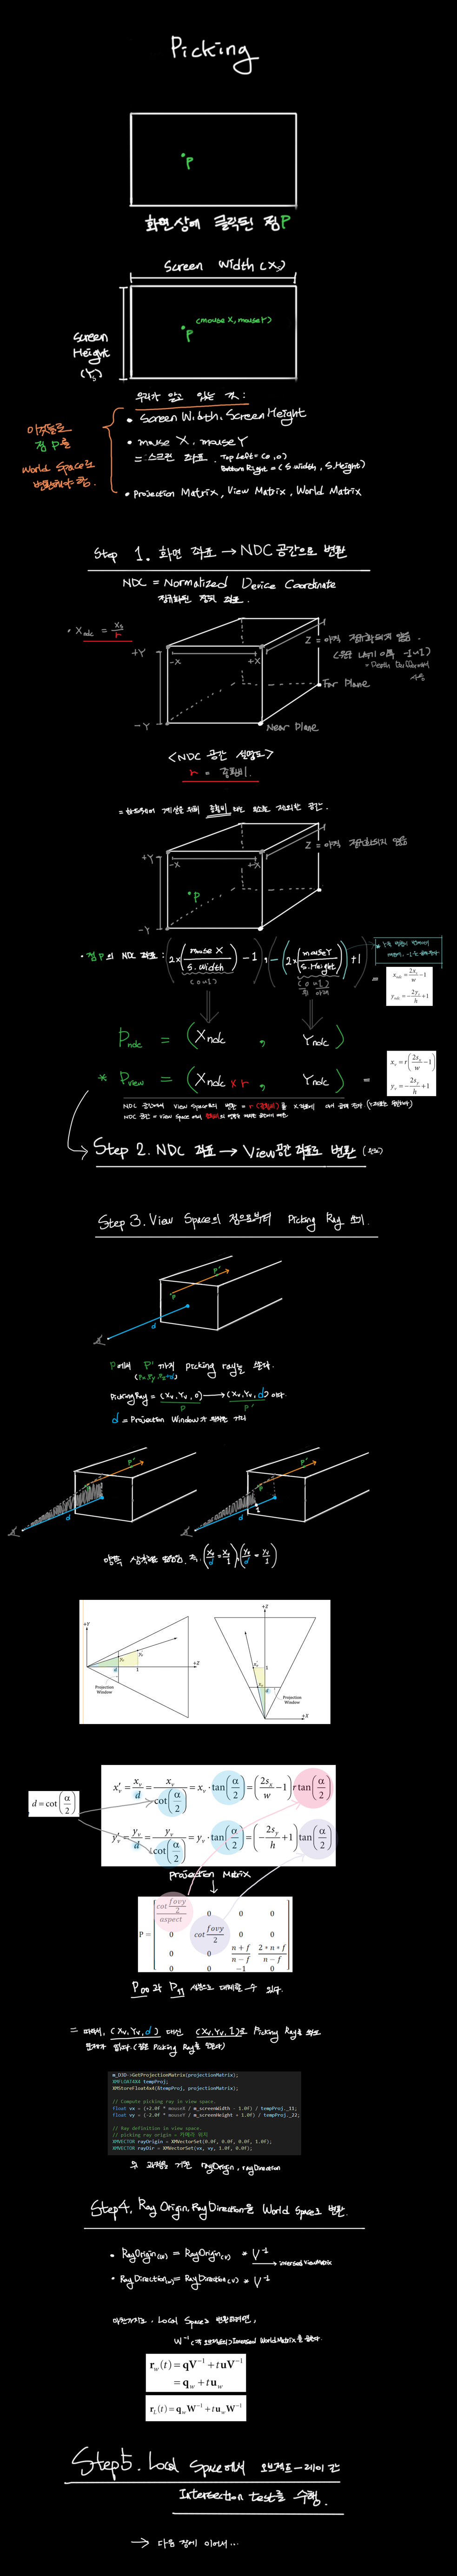 Picking
P
화면상에 클릭된 점P
Screen Width (Xs)
(mouse X, mouse Y)
P
Screen
Height
(Ys)
우리가 알고 있는 것:
• Screen Width, Screen Height
• mouse X, mouse Y
= 스크린 좌표. Top Left = (0,0)
Bottom Right = (S.Width, S.Height)
• Projection Matrix, View Matrix, World Matrix
이것들로
점 P를
World Space로
변환해야 함.
Step 1. 화면 좌표 → NDC 공간으로 변환
NDC = Normalized Device Coordinate
정규화된 장치 좌표.
+Y
-X
+X
-Y
Z = 아직 정규화되지 않음.
사용
Far Plane
Near Plane
<NDC 공간 설명도>
r = 종횡비.
+Y
-X
+X
Z = 아직 정규화되지 않음
P
-Y
• 점 P의 NDC 좌표: (2x(mouse X / S.width) -1, -(2x(mouse Y / S.Height)) +1)
(0 or 1)
(0 or 1)
x_ndc = 2s_x/w - 1
y_ndc = -2s_y/h + 1
P_ndc = (X_ndc , Y_ndc)
* P_view = (X_ndc x r, Y_ndc) =
x_v = r(2s_x/w - 1)
y_v = -2s_y/h + 1
Step 2. NDC 좌표 → View공간 좌표로 변환
Step 3. View Space의 점으로부터 Picking Ray 쏘기.
P
P'
d
P에서 P' 까지 picking ray를 쏜다.
Picking Ray = (Xv, Yv, 0) → (Xv, Yv, d) 이다.
P
P'
d = Projection Window가 위치한 거리
P'
d
P'
1
d
+Y
+Z
Projection
Window
d
1
+Z
+X
Projection
Window
d
1
d = cot(α/2)
x'_v = x_v/d = x_v/cot(α/2) = x_v · tan(α/2) = (2s_x/w - 1) r tan(α/2)
y'_v = y_v/d = y_v/cot(α/2) = y_v · tan(α/2) = (-2s_y/h + 1) tan(α/2)
projection Matrix
P = [cot(fovy/2)/aspect 0 0 0
0 cot fovy/2 0 0
0 0 n+f/n-f 2*n*f/n-f
0 0 -1 0]
P00과 P11 성분으로 대체할 수 있다.
= 따라서, (Xv, Yv, d) 대신 (Xv, Yv, 1)로 Picking Ray를 쏴도
문제가 없다. (같은 Picking Ray를 쏜다)
m_D3D->GetProjectionMatrix(projectionMatrix);
XMFLOAT4X4 tempProj;
XMStoreFloat4x4(&tempProj, projectionMatrix);
// Compute picking ray in view space.
float vx = (+2.0f * mouseX / m_screenWidth - 1.0f) / tempProj._11;
float vy = (-2.0f * mouseY / m_screenHeight + 1.0f) / tempProj._22;
// Ray definition in view space.
// picking ray origin = 카메라 위치
XMVECTOR rayOrigin = XMVectorSet(0.0f, 0.0f, 0.0f, 1.0f);
XMVECTOR rayDir = XMVectorSet(vx, vy, 1.0f, 0.0f);
위 과정을 거친 rayOrigin, rayDirection
Step4. Ray Origin, Ray Direction을 World Space로 변환.
• RayOrigin(w) = RayOrigin(v) * V⁻¹
→ inversed ViewMatrix
• RayDirection(w) = RayDirection(v) * V⁻¹
마찬가지로, Local Space로 변환하려면,
W⁻¹ (각 오브젝트의) Inversed WorldMatrix를 곱한다.
r_w(t) = qV⁻¹ + tuV⁻¹
= q_w + tu_w
r_L(t) = q_wW⁻¹ + tu_wW⁻¹
Step5. Local Space에서 오브젝트-레이 간
Intersection test를 수행.
→ 다음 장에 이어서...